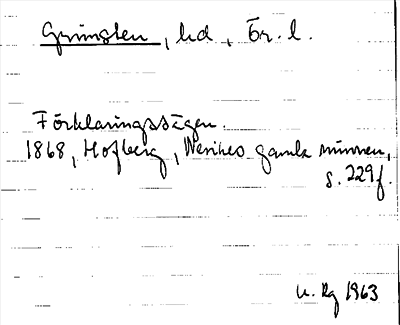 Grimsten, hd, Ör. l.
Förklaringssägen.
1868, Hofberg, Nerikes gamla minnen,
s. 229f.
u. Rg 1963